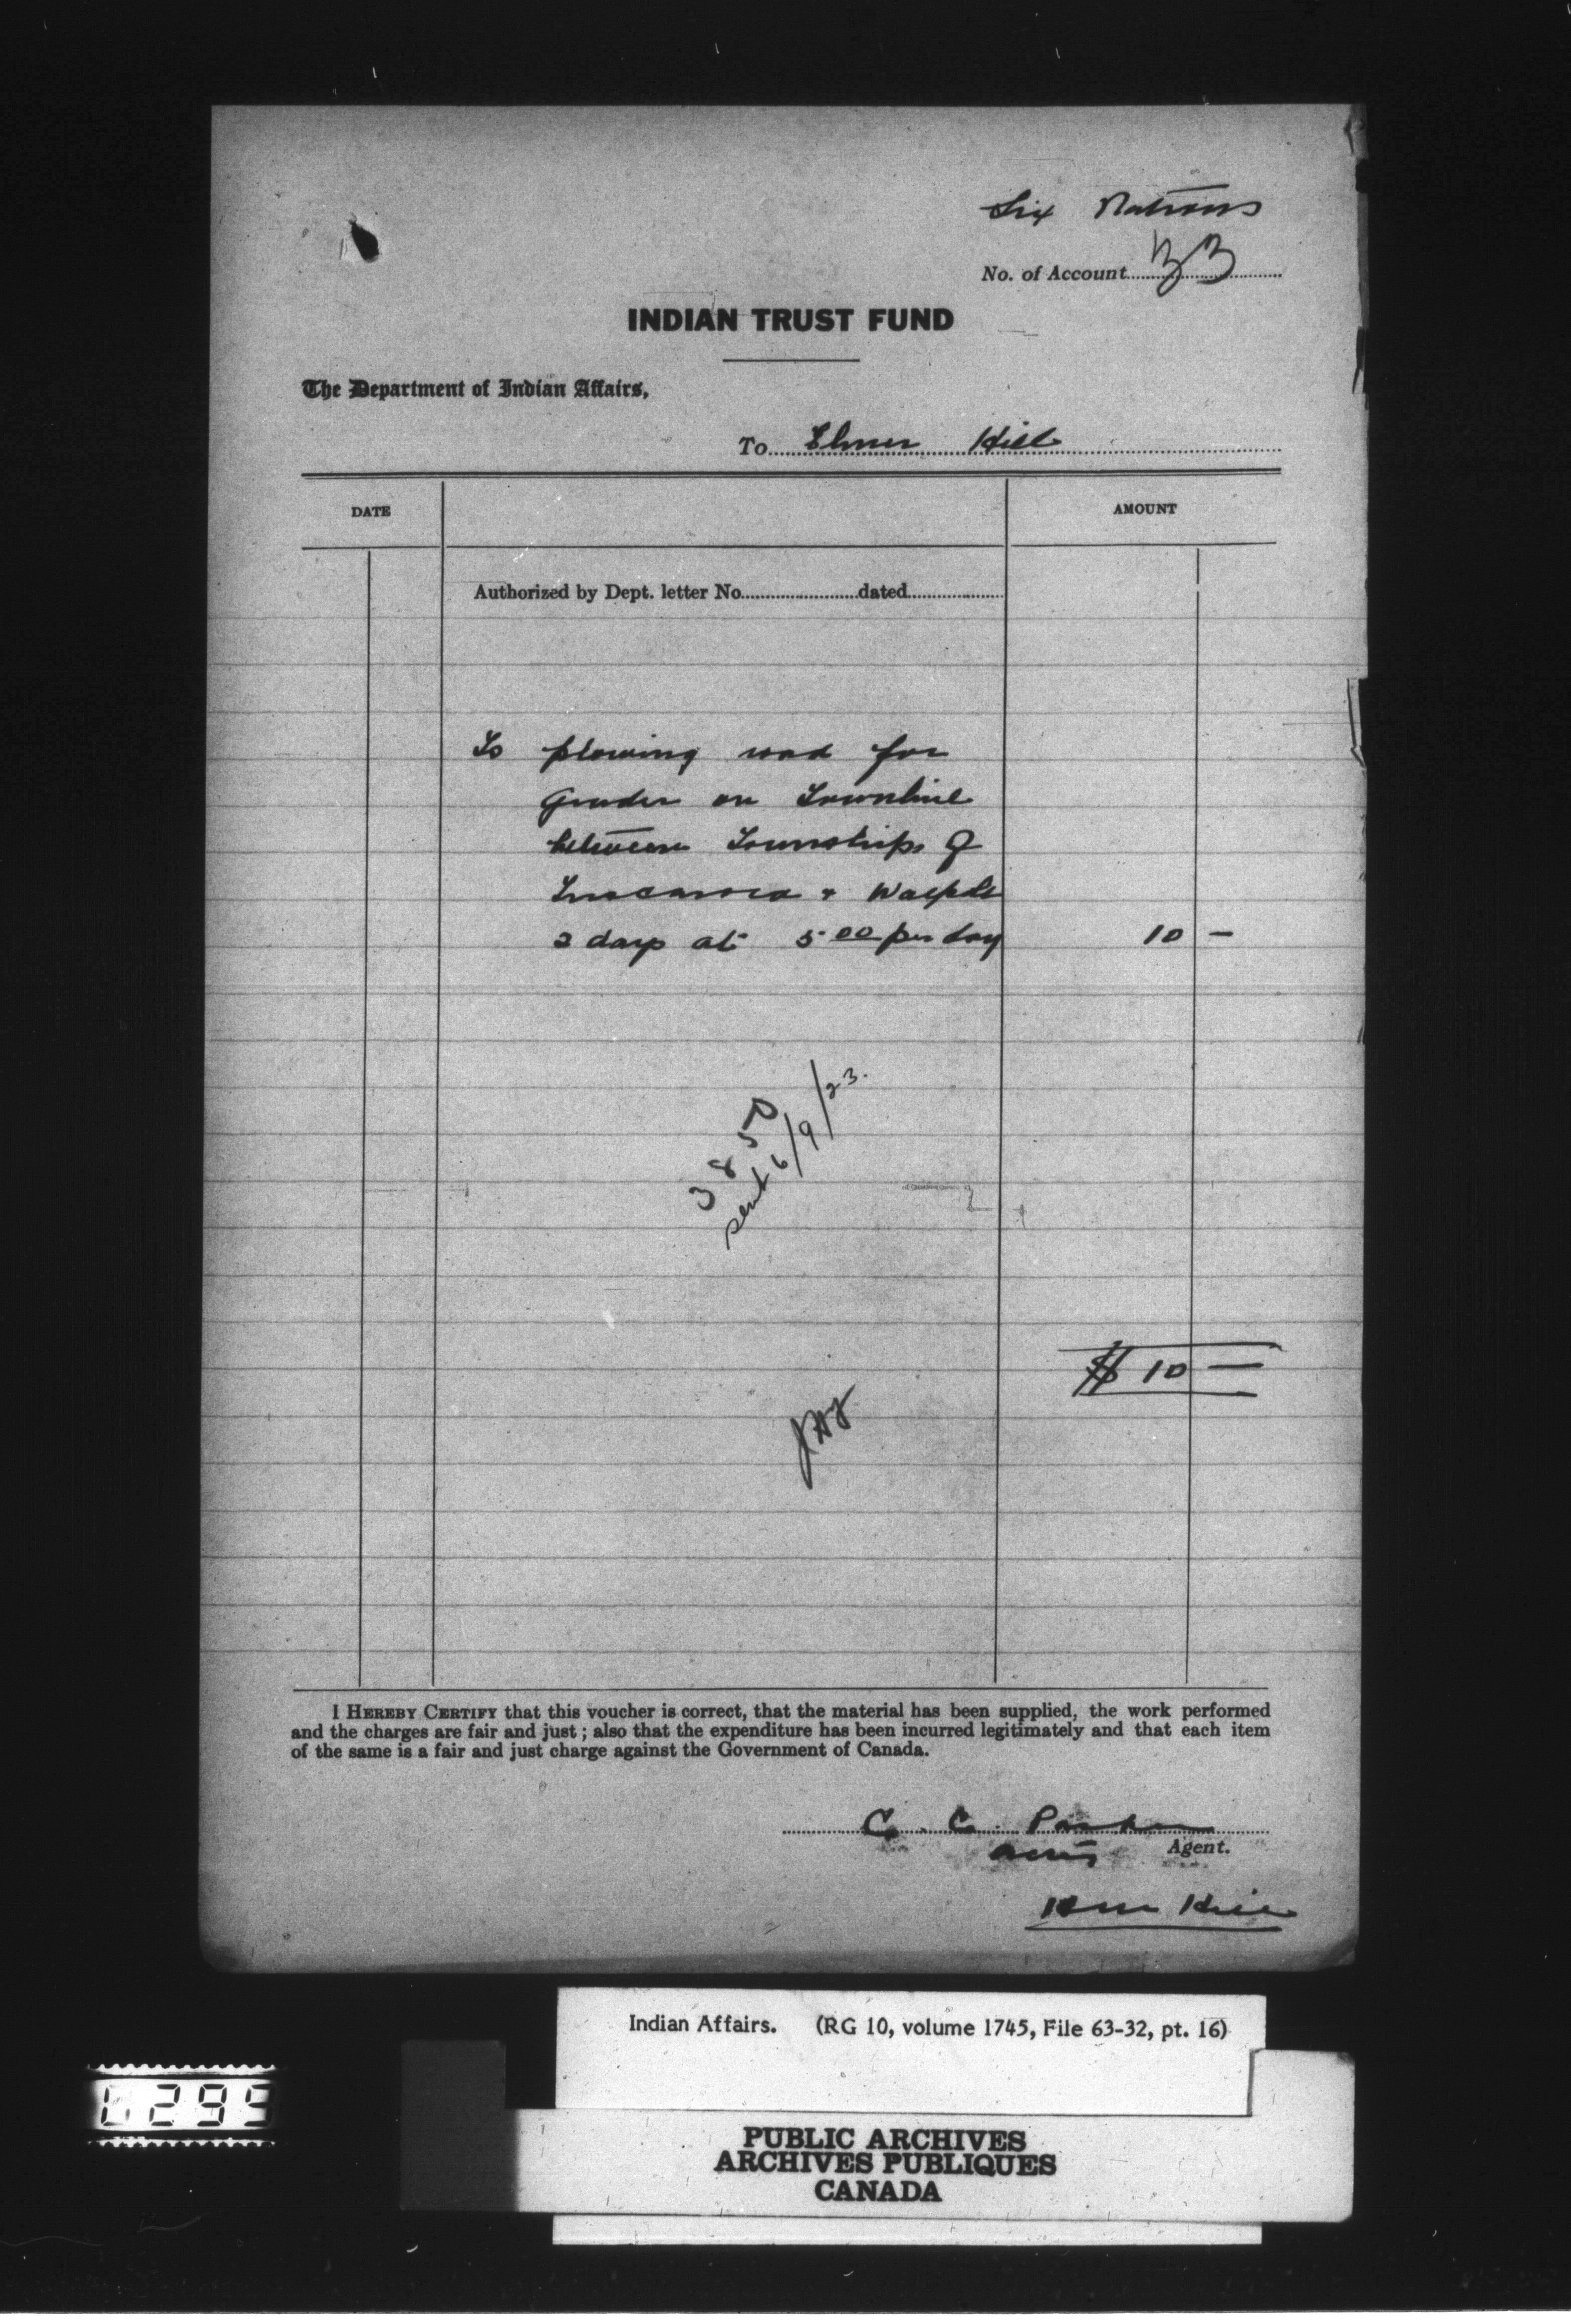 Six Nations
No. of Account 33
INDIAN TRUST FUND
The Department of Indian Affairs,
To Elmer Hill
DATE
AMOUNT
Authorized by Dept. letter No. dated
To plowing road for
Grader on Townline
between Townships of
Tuscarora & Walpole
2 days at 5 00 per day 10 —
3850
sent 6/9/23.
$ 10 —
I HEREBY CERTIFY that this voucher is correct, that the material has been supplied, the work performed
and the charges are fair and just ; also that the expenditure has been incurred legitimately and that each item
of the same is a fair and just charge against the Government of Canada.
C. C. Parker
Agent.
Hill
Indian Affairs. (RG 10, volume 1745, File 63-32, pt. 16)
299
PUBLIC ARCHIVES
ARCHIVES PUBLIQUES
CANADA